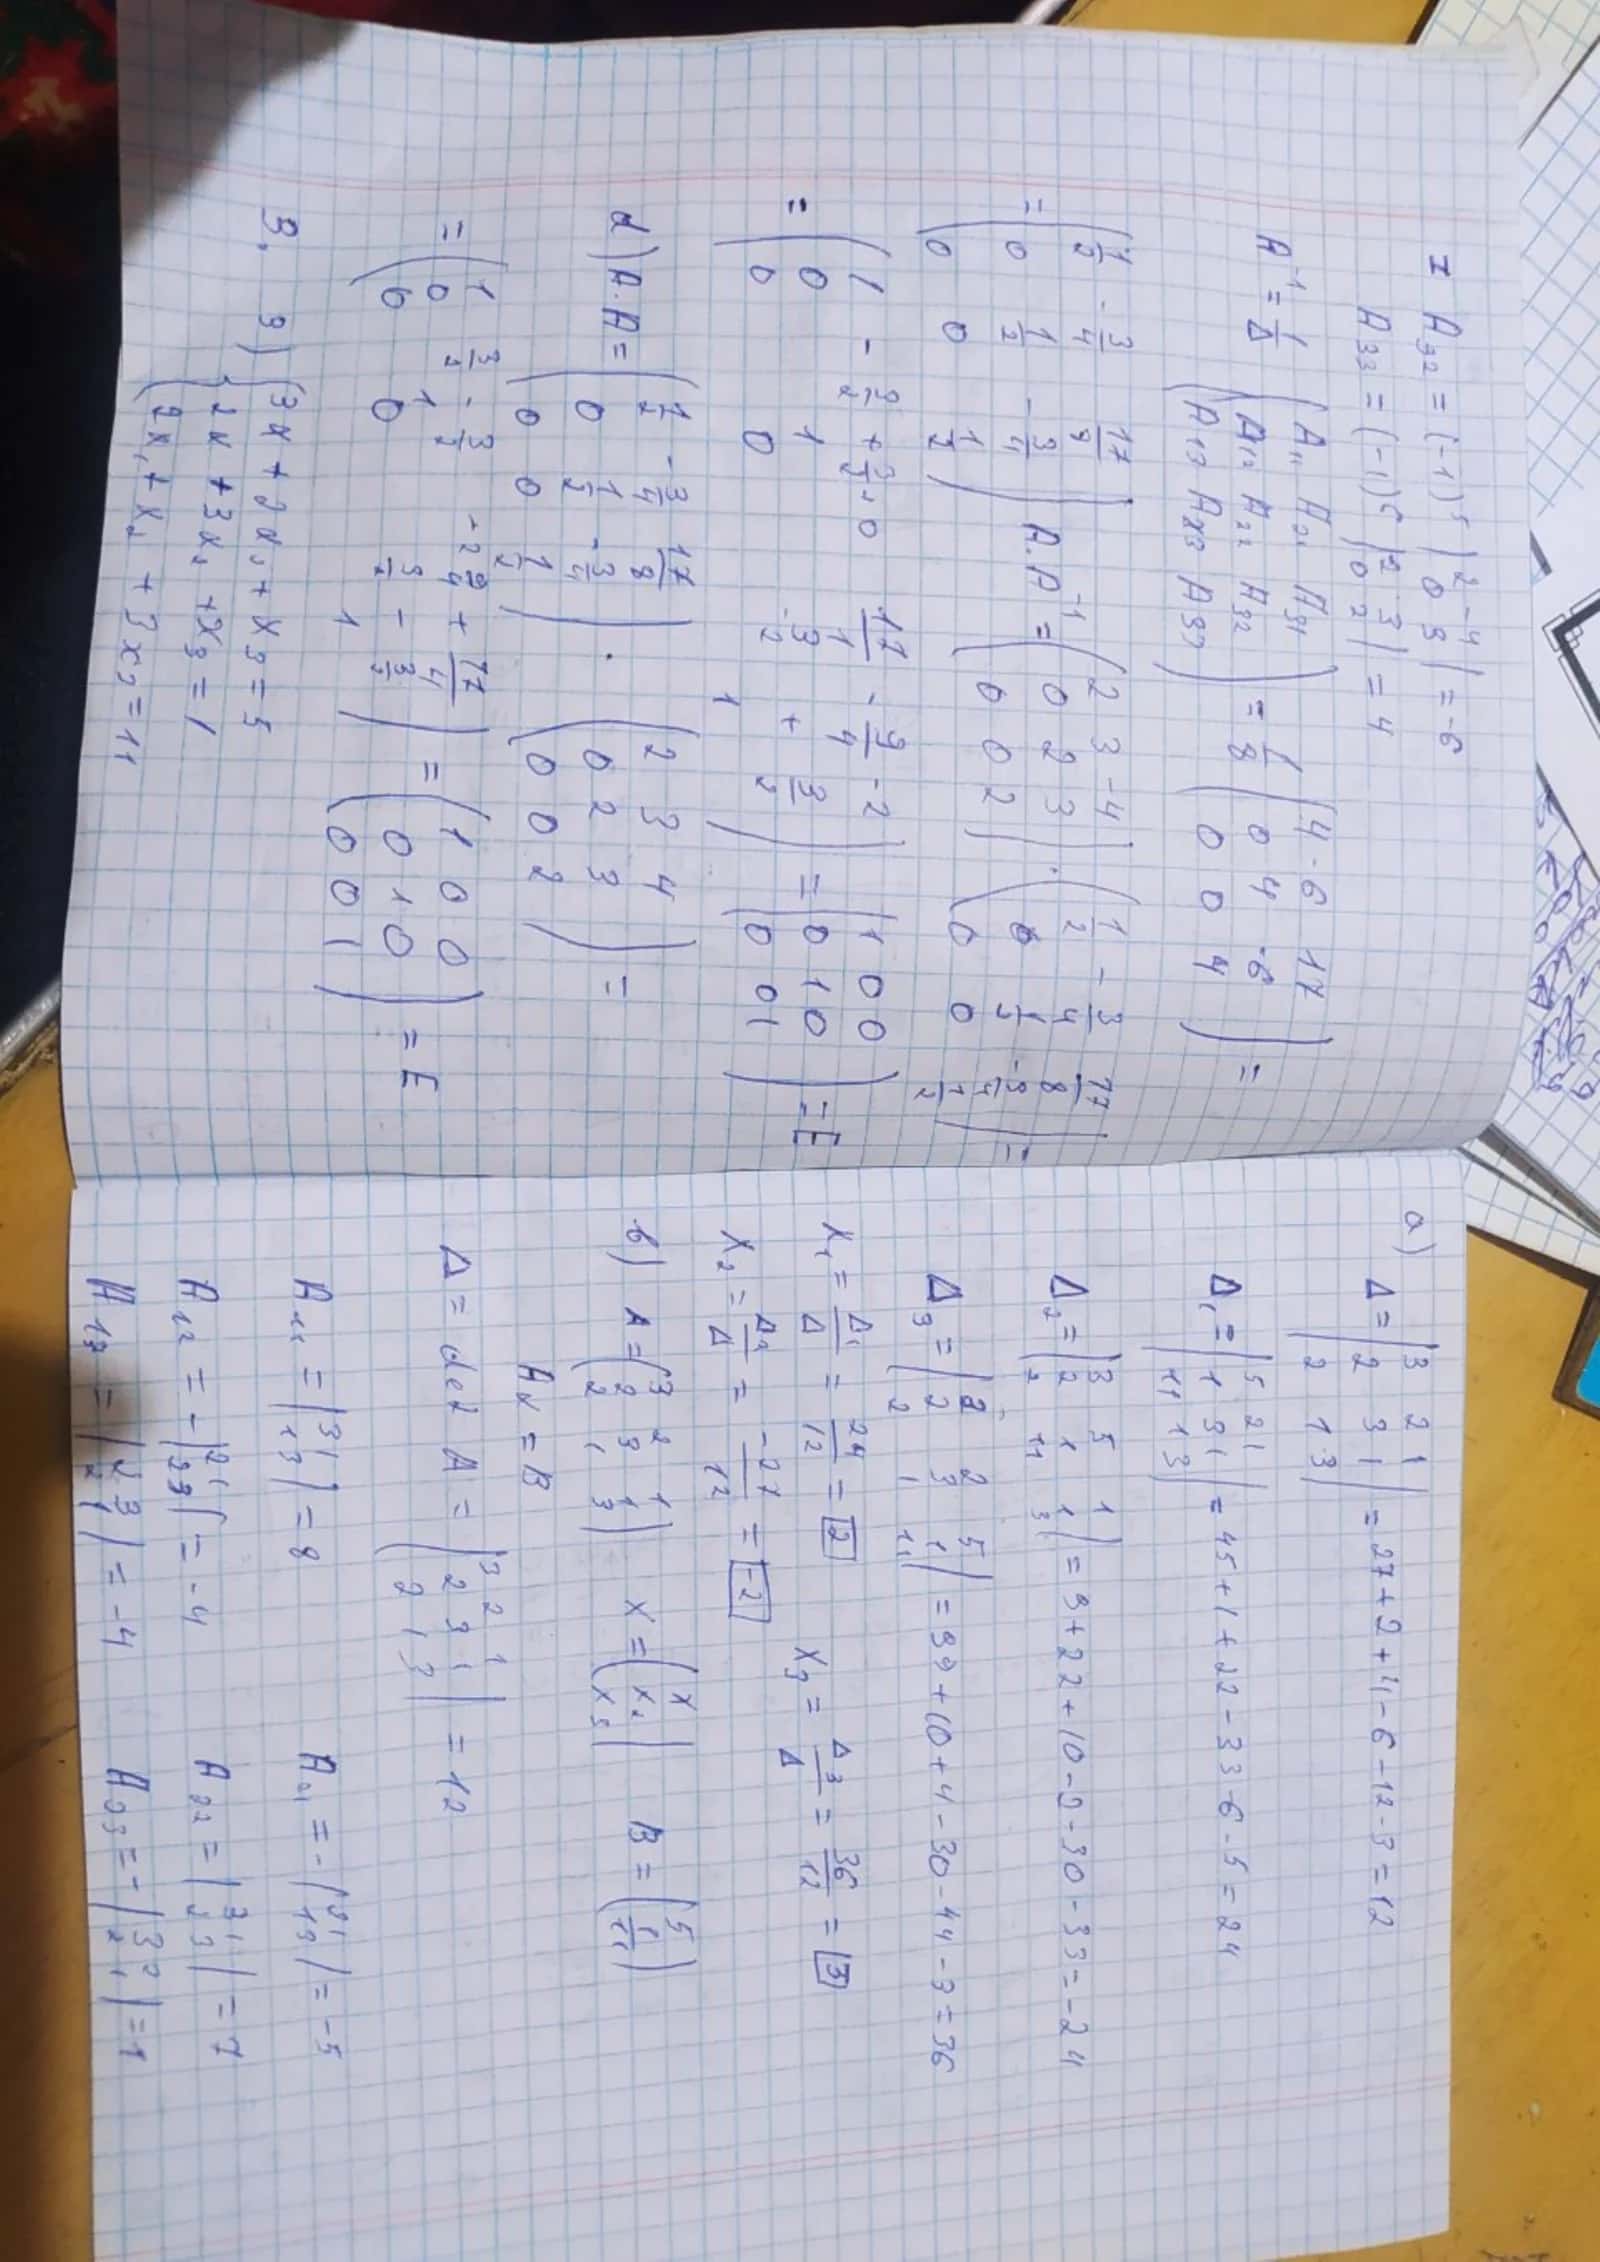 A₃₂ = (-1)⁵ |2 -4; 0 3| = -6
A₃₃ = (-1)⁶ |2 3; 0 2| = 4
A⁻¹ = 1/Δ (A₁₁ A₂₁ A₃₁; A₁₂ A₂₂ A₃₂; A₁₃ A₂₃ A₃₃) = 1/8 (4 -6 17; 0 4 -6; 0 0 4) =
= (1/2 -3/4 17/8; 0 1/2 -3/4; 0 0 1/2) A·A⁻¹ = (2 3 -4; 0 2 3; 0 0 2) · (1/2 -3/4 17/8; 0 1/2 -3/4; 0 0 1/2) =
= (1 -3/2 + 3/2 + 0 17/4 - 9/4 - 2; 0 1 -3/2 + 3/2; 0 0 1) = (1 0 0; 0 1 0; 0 0 1) = E
d) A·A = (1/2 -3/4 17/8; 0 1/2 -3/4; 0 0 1/2) · (2 3 4; 0 2 3; 0 0 2) =
= (1 3/2 - 3/2 -2 9/4 + 17/4; 0 1 3/2 - 3/2; 0 0 1) = (1 0 0; 0 1 0; 0 0 1) = E
3. 3) {3x + 2x₂ + x₃ = 5
2x + 3x₂ + x₃ = 1
2x₁ + x₂ + 3x₃ = 11
a) Δ = |3 2 1; 2 3 1; 2 1 3| = 27 + 2 + 4 - 6 - 12 - 3 = 12
Δ₁ = |5 2 1; 1 3 1; 11 1 3| = 45 + 1 + 22 - 33 - 6 - 5 = 24
Δ₂ = |3 5 1; 2 1 1; 2 11 3| = 9 + 22 + 10 - 2 - 30 - 33 = -24
Δ₃ = |3 2 5; 2 3 1; 2 1 11| = 99 + 10 + 4 - 30 - 44 - 3 = 36
x₁ = Δ₁/Δ = 24/12 = 2 x₃ = Δ₃/Δ = 36/12 = 3
x₂ = Δ₂/Δ = -24/12 = -2
b) A = (3 2 1; 2 3 1; 2 1 3) X = (x; x₂; x₃) B = (5; 1; 11)
Ax = B
Δ = det A = |3 2 1; 2 3 1; 2 1 3| = 12
A₁₁ = |3 1; 1 3| = 8 A₂₁ = -|2 1; 1 3| = -5
A₁₂ = -|2 1; 2 3| = -4 A₂₂ = |3 1; 2 3| = 7
A₁₃ = |2 3; 2 1| = -4 A₂₃ = -|3 2; 2 1| = 1